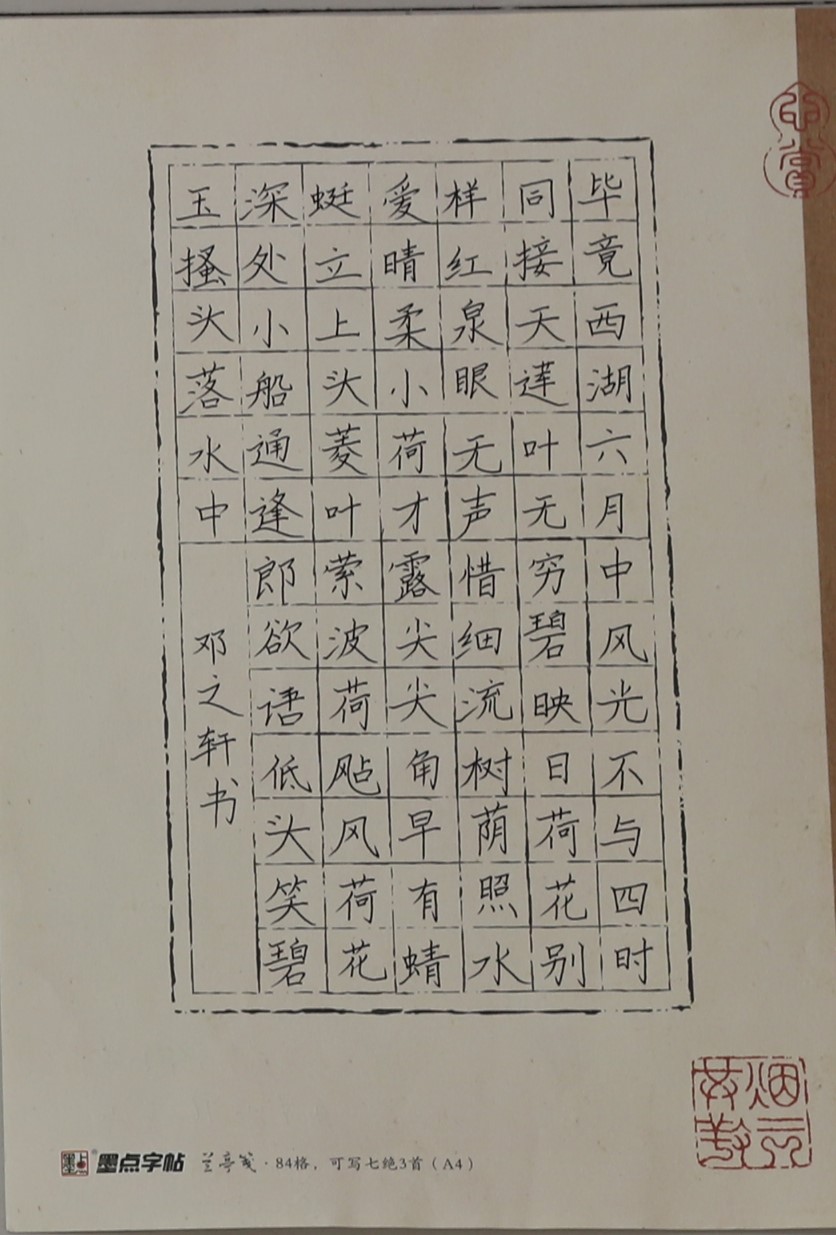 毕竟西湖六月中风光不与四时
同接天莲叶无穷碧映日荷花别
样红泉眼无声惜细流树荫照水
爱晴柔小荷才露尖尖角早有蜻
蜓立上头菱叶萦波荷飐风荷花
深处小船通逢郎欲语低头笑碧
玉搔头落水中
邓之轩书
墨点字帖 兰亭笺·84格，可写七绝3首（A4）